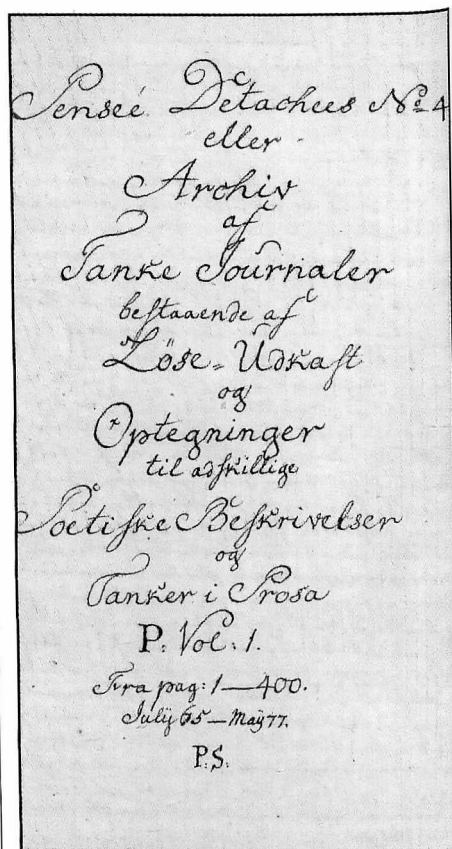 Penseé Detachees No 4
eller
Archiv
af
Tanke Journaler
bestaaende af
Löse-Udkast
og
Optegninger
til adskillige
Poëtiske Beskrivelser
og
Tanker i Prosa
P: Vol: 1.
Fra pag: 1—400.
Julÿ 65—Maÿ 77.
P:S: